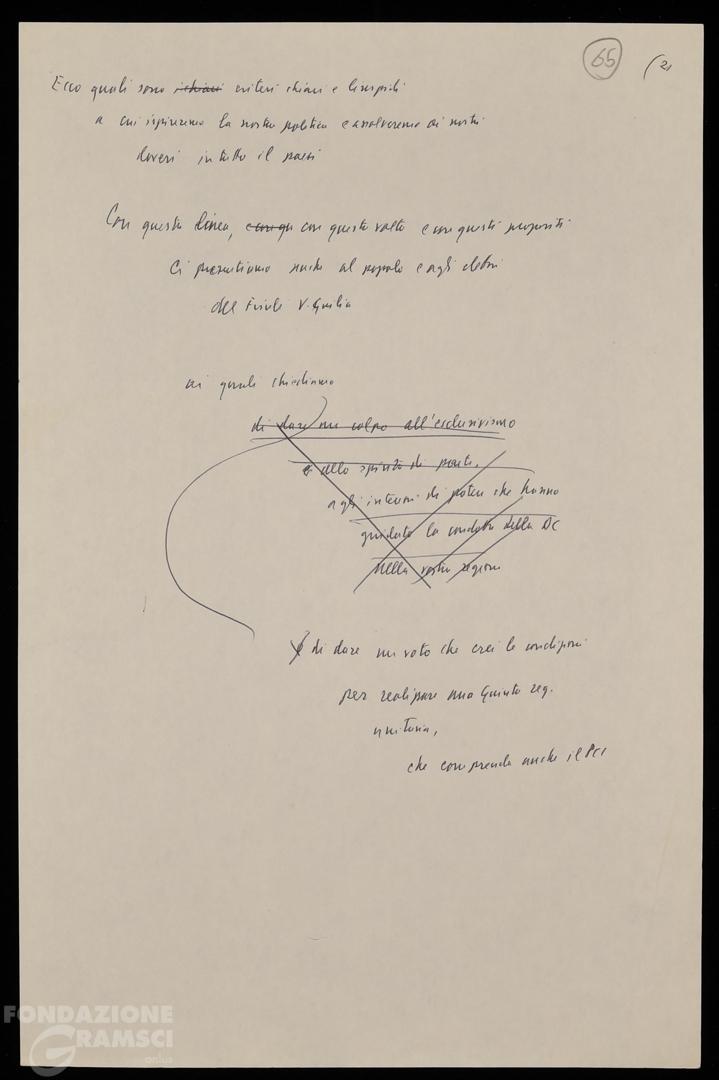 65
(21
Ecco quali sono i chiari criteri chiari e limpidi
a cui ispireremo la nostra politica e assolveremo ai nostri
doveri in tutto il paese
Con questa linea, e con qu con questo volto e con questi propositi
Ci presentiamo anche al popolo e agli elettori
del Friuli V. Giulia
ai quali chiediamo
di dare un colpo all'esclusivismo
e allo spirito di parte,
agli interessi di potere che hanno
guidato la condotta della DC
nella vostra regione
di dare un voto che crei le condizioni
per realizzare una Giunta reg.
unitaria,
che comprenda anche il PCI
FONDAZIONE
GRAMSCI
onlus